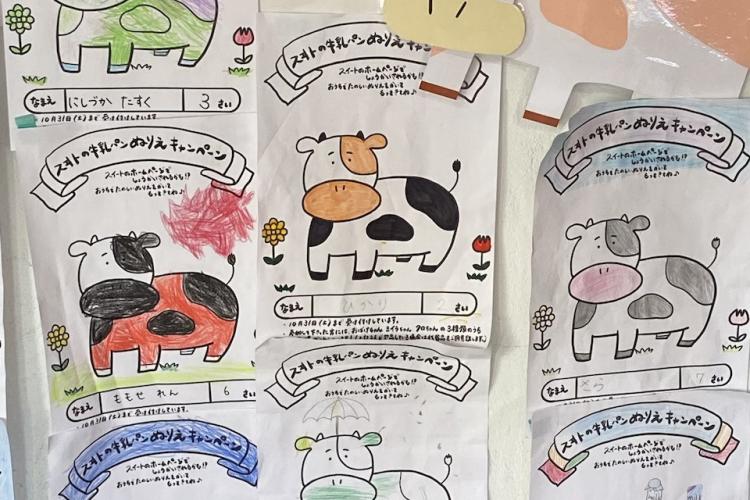 なまえ にしづか たすく 3 さい
・10月31日(土)まで 受け付けしています。
スイートの牛乳パン ぬりえ キャンペーン
スイートのホームページで
しょうかいされるかも!?
おうちでたのしいぬりえをかいて
もってきてね♪
なまえ ももせ れん 6 さい
・10月31日(土)まで 受け付けしています。
スイートの牛乳パン ぬりえ キャンペーン
スイートのホームページで
しょうかいされるかも!?
おうちでたのしいぬりえをかいて
もってきてね♪
スイートの牛乳パン ぬりえ キャン
スイートのホームページで
しょうかいされるかも!?
おうちでたのしいぬりえをかいて
もってきてね♪
なまえ ひかり 2 さい
・10月31日(土)まで 受け付けしています。
スイートの牛乳パン ぬりえ キャンペーン
スイートのホームページで
しょうかいされるかも!?
おうちでたのしいぬりえをかいて
もってきてね♪
スイートの牛乳パン ぬりえ キャンペーン
スイートのホームページで
しょうかいされるかも!?
おうちでたのしいぬりえをかいて
もってきてね♪
なまえ そら 7 さい
スイートの牛乳パン ぬりえ キャンペーン
スイートのホームページで
しょうかいされるかも!?
おうちでたのしいぬりえをかいて
もってきてね♪
milk